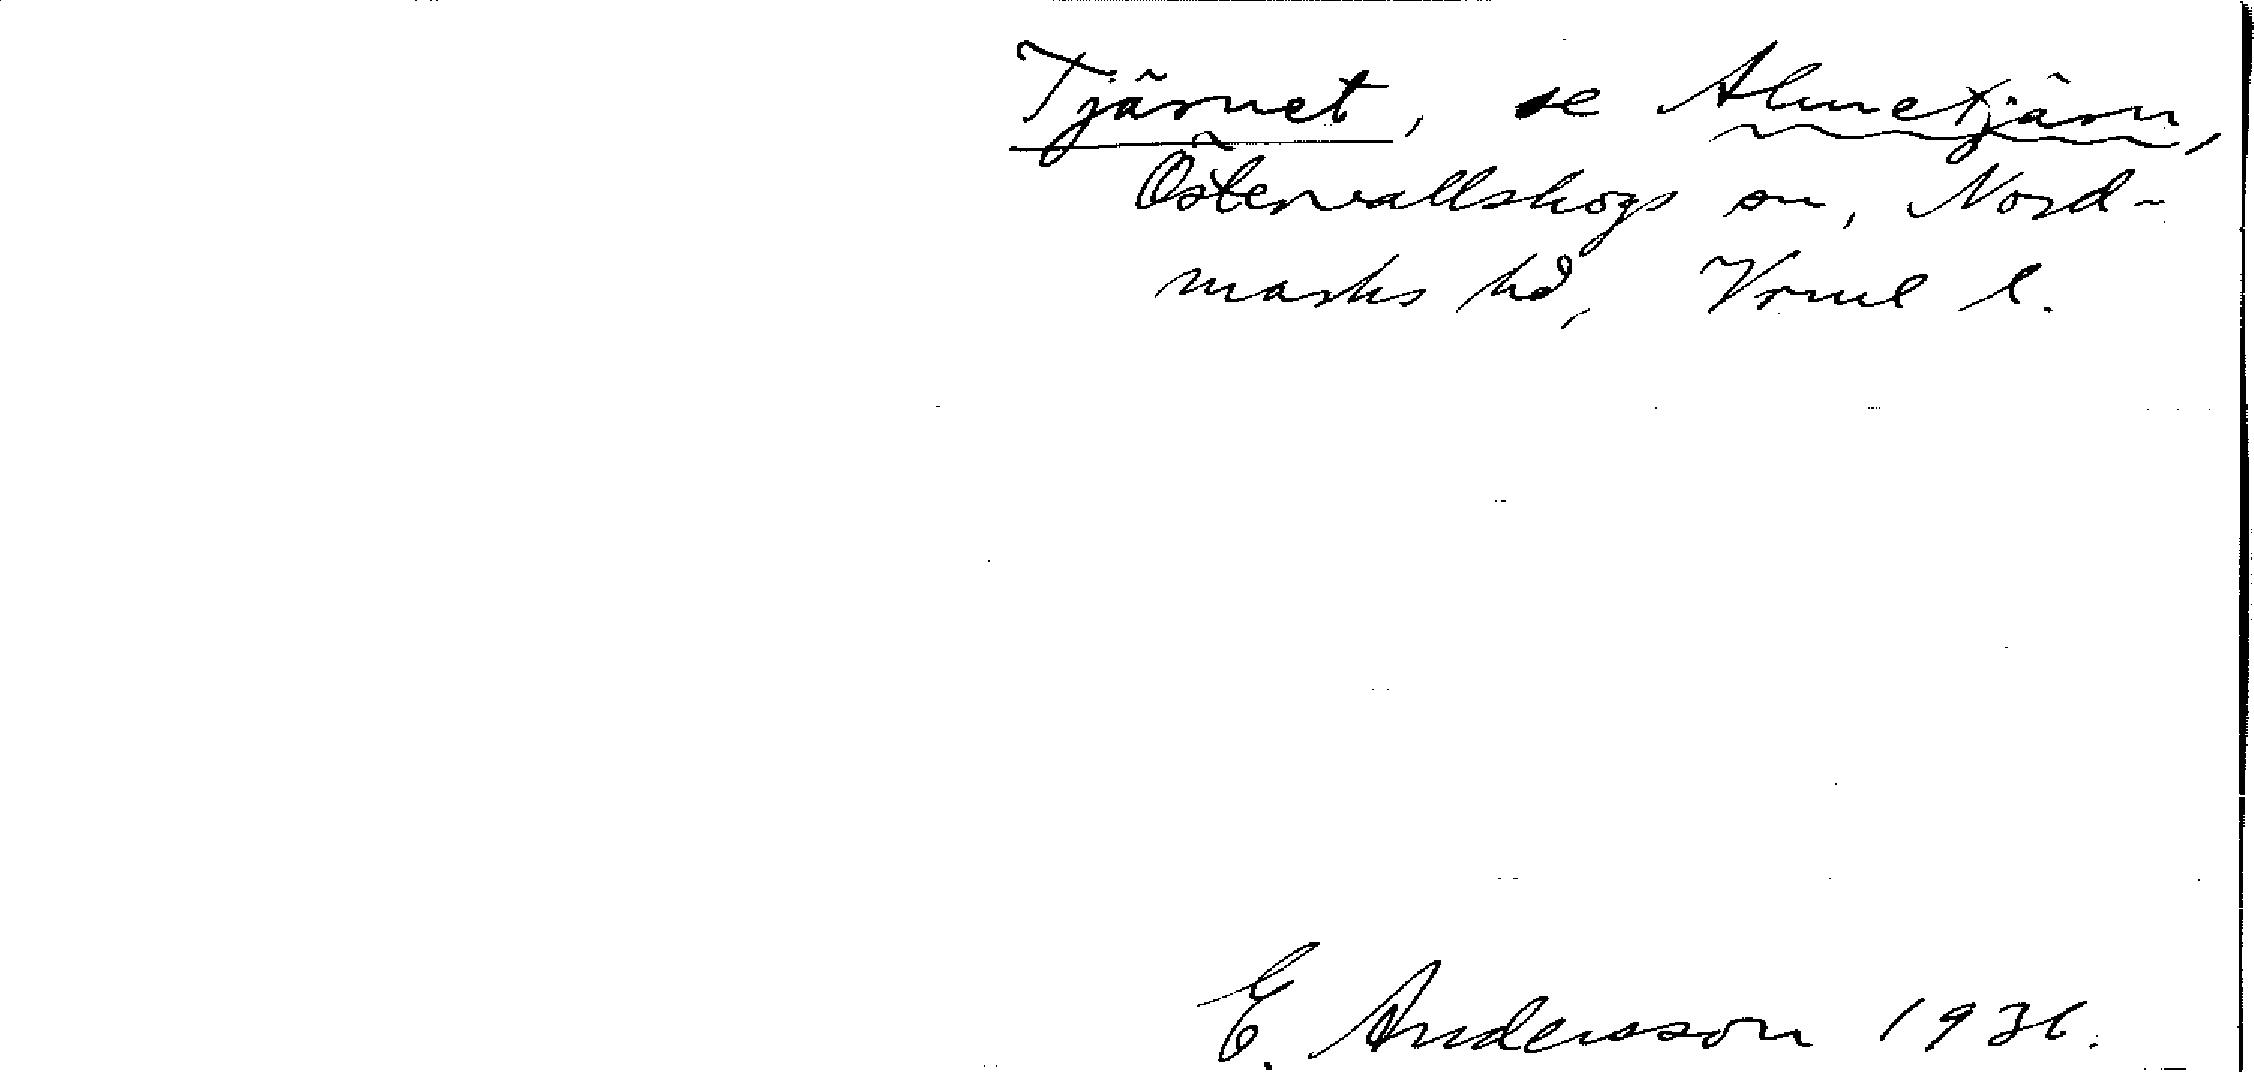 Tjärnet, se Almetjärn,
Östervallskogs sn, Nord-
marks hd, Vrml l.
E. Andersson 1936.